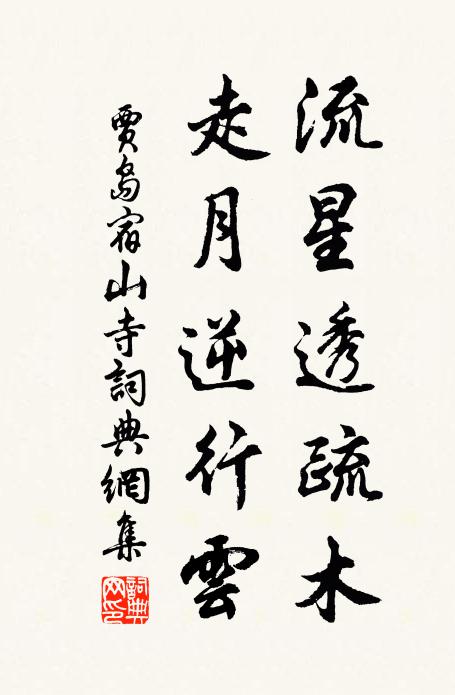 流星透疏木
走月逆行雲
賈島宿山寺詞典網集
詞典網印